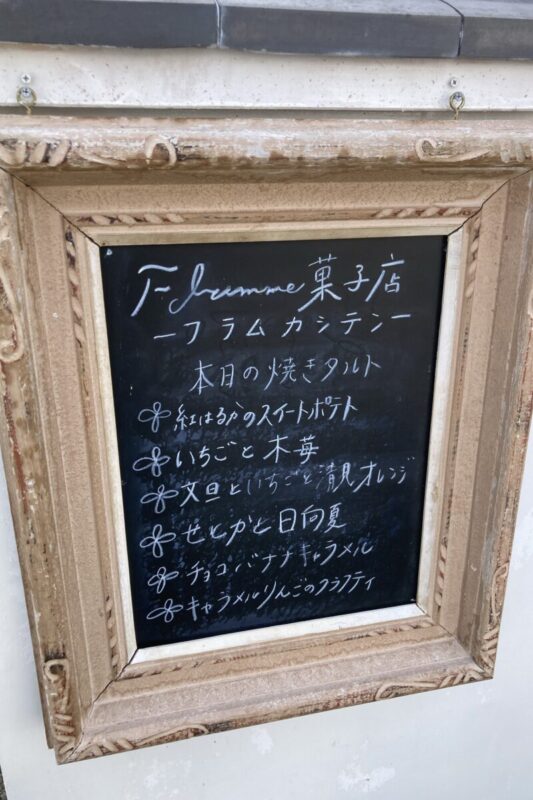 Flumme 菓子店
ーフラムカシテンー
本日の焼きタルト
紅はるかのスイートポテト
いちごと木苺
文旦といちごと清見オレンジ
せとかと日向夏
チョコバナナキャラメル
キャラメルりんごのクラフティ